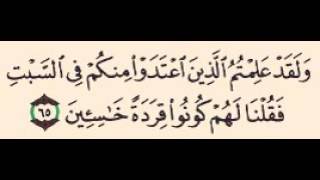 وَلَقَدْ عَلِمْتُمُ ٱلَّذِينَ ٱعْتَدَوْا۟ مِنكُمْ فِى ٱلسَّبْتِ
فَقُلْنَا لَهُمْ كُونُوا۟ قِرَدَةً خَٰسِـِٔينَ ٦٥